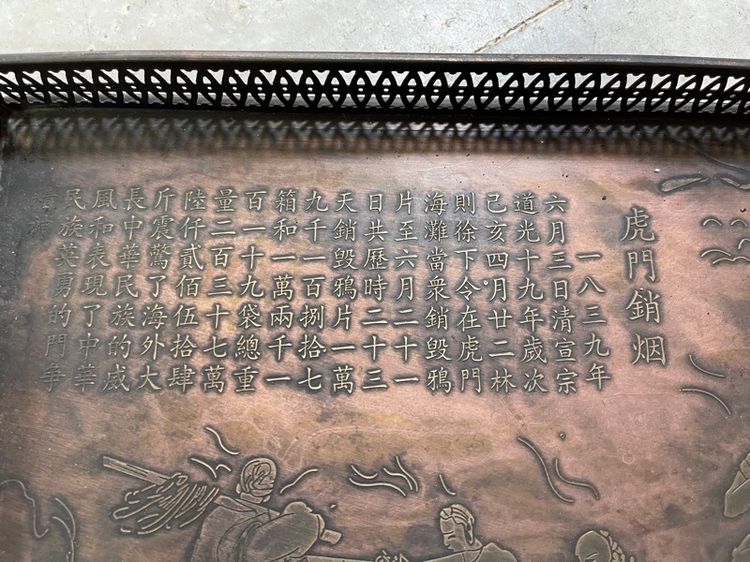 虎門銷烟
一八三九年
六月三日清宣宗
道光十九年歲次
己亥四月廿二林
則徐下令在虎門
海灘當眾銷毀鴉
片至六月二十一
日共歷時二十三
天銷毀鴉片一萬
九千一百捌拾七
箱和一萬兩千一
百一十九袋總重
量二百三十七萬
陸仟貳佰伍拾肆
斤震驚了海外大
長中華民族的威
風和表現了中華
民族英勇的鬥爭
精神